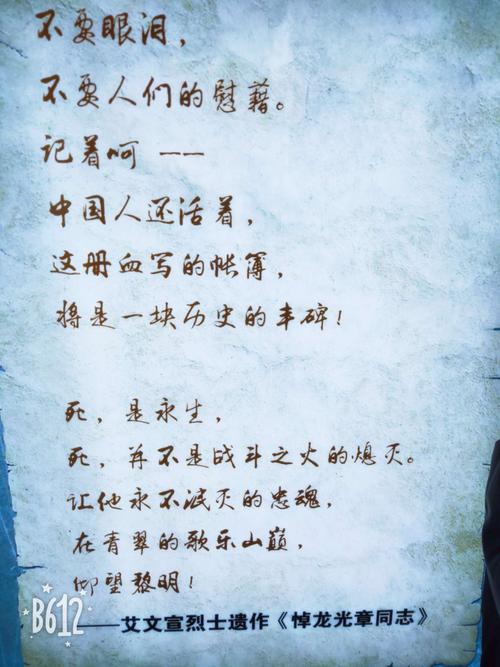 不要眼泪，
不要人们的慰藉。
记着呵 ——
中国人还活着，
这册血写的帐簿，
将是一块历史的丰碑！
死，是永生，
死，并不是战斗之火的熄灭。
让他永不泯灭的忠魂，
在青翠的歌乐山巅，
仰望黎明！
B612
——艾文宣烈士遗作《悼龙光章同志》